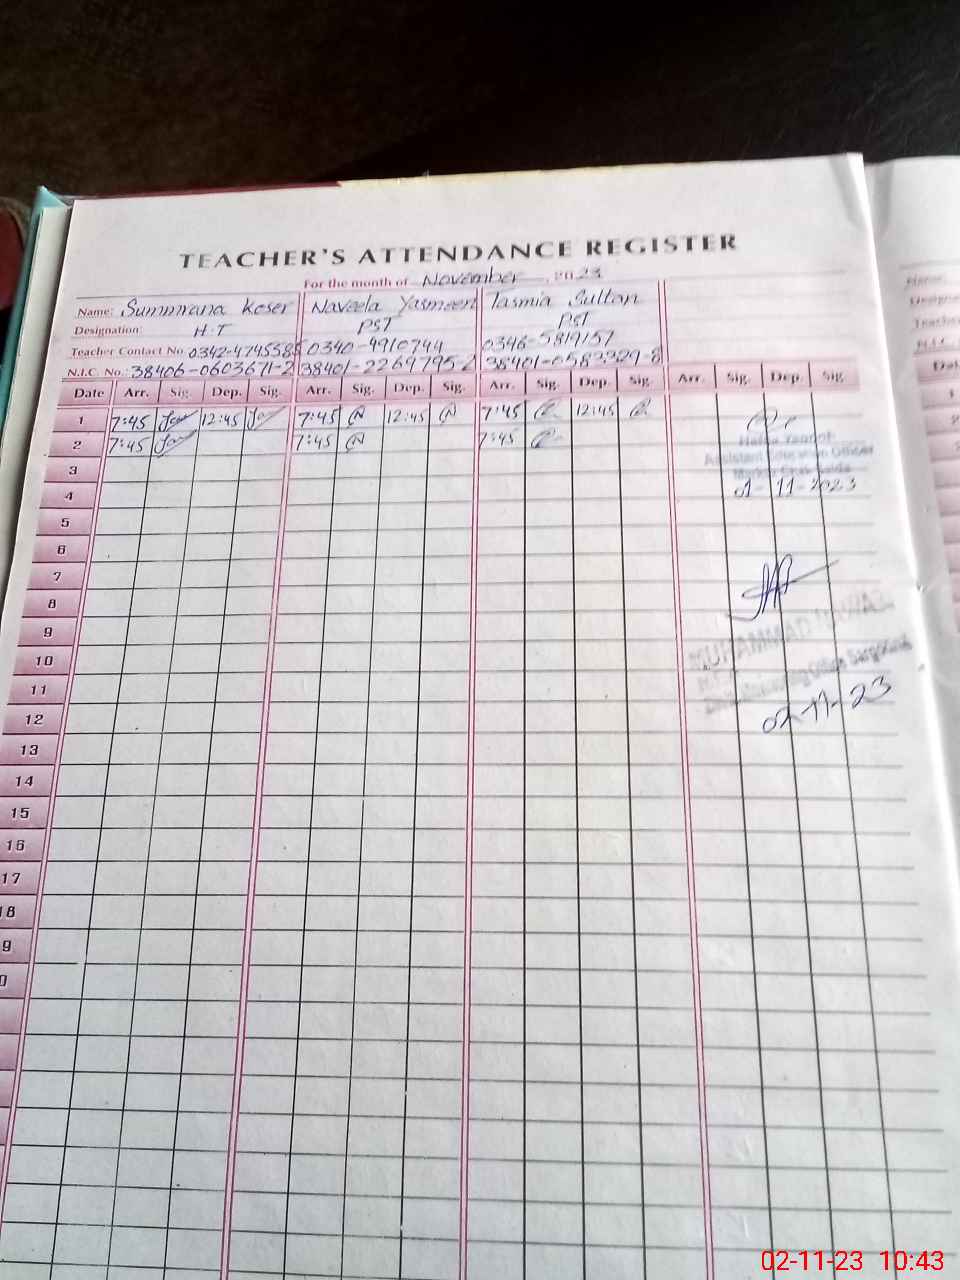 TEACHER'S ATTENDANCE REGISTER
For the month of November, 2023
Name: Summrana Koser Naveela Yasmeen Tasmia Sultan
Designation: H.T PST PST
Teacher Contact No. 0342-4745585 0340-4910744 0346-5819157
N.I.C. No.: 38406-0603671-2 38401-2269795-2 38401-0583329-8
Date Arr. Sig. Dep. Sig. Arr. Sig. Dep. Sig. Arr. Sig. Dep. Sig. Arr. Sig. Dep. Sig
1 7:45 12:45 7:45 12:45 7:45 12:45
2 7:45 7:45 7:45
Assistant Education Officer
3
4 01-11-2023
5
6
7
8
9
MUHAMMAD
10
11
12 02-11-23
13
14
15
16
17
18
9
0
02-11-23 10:43